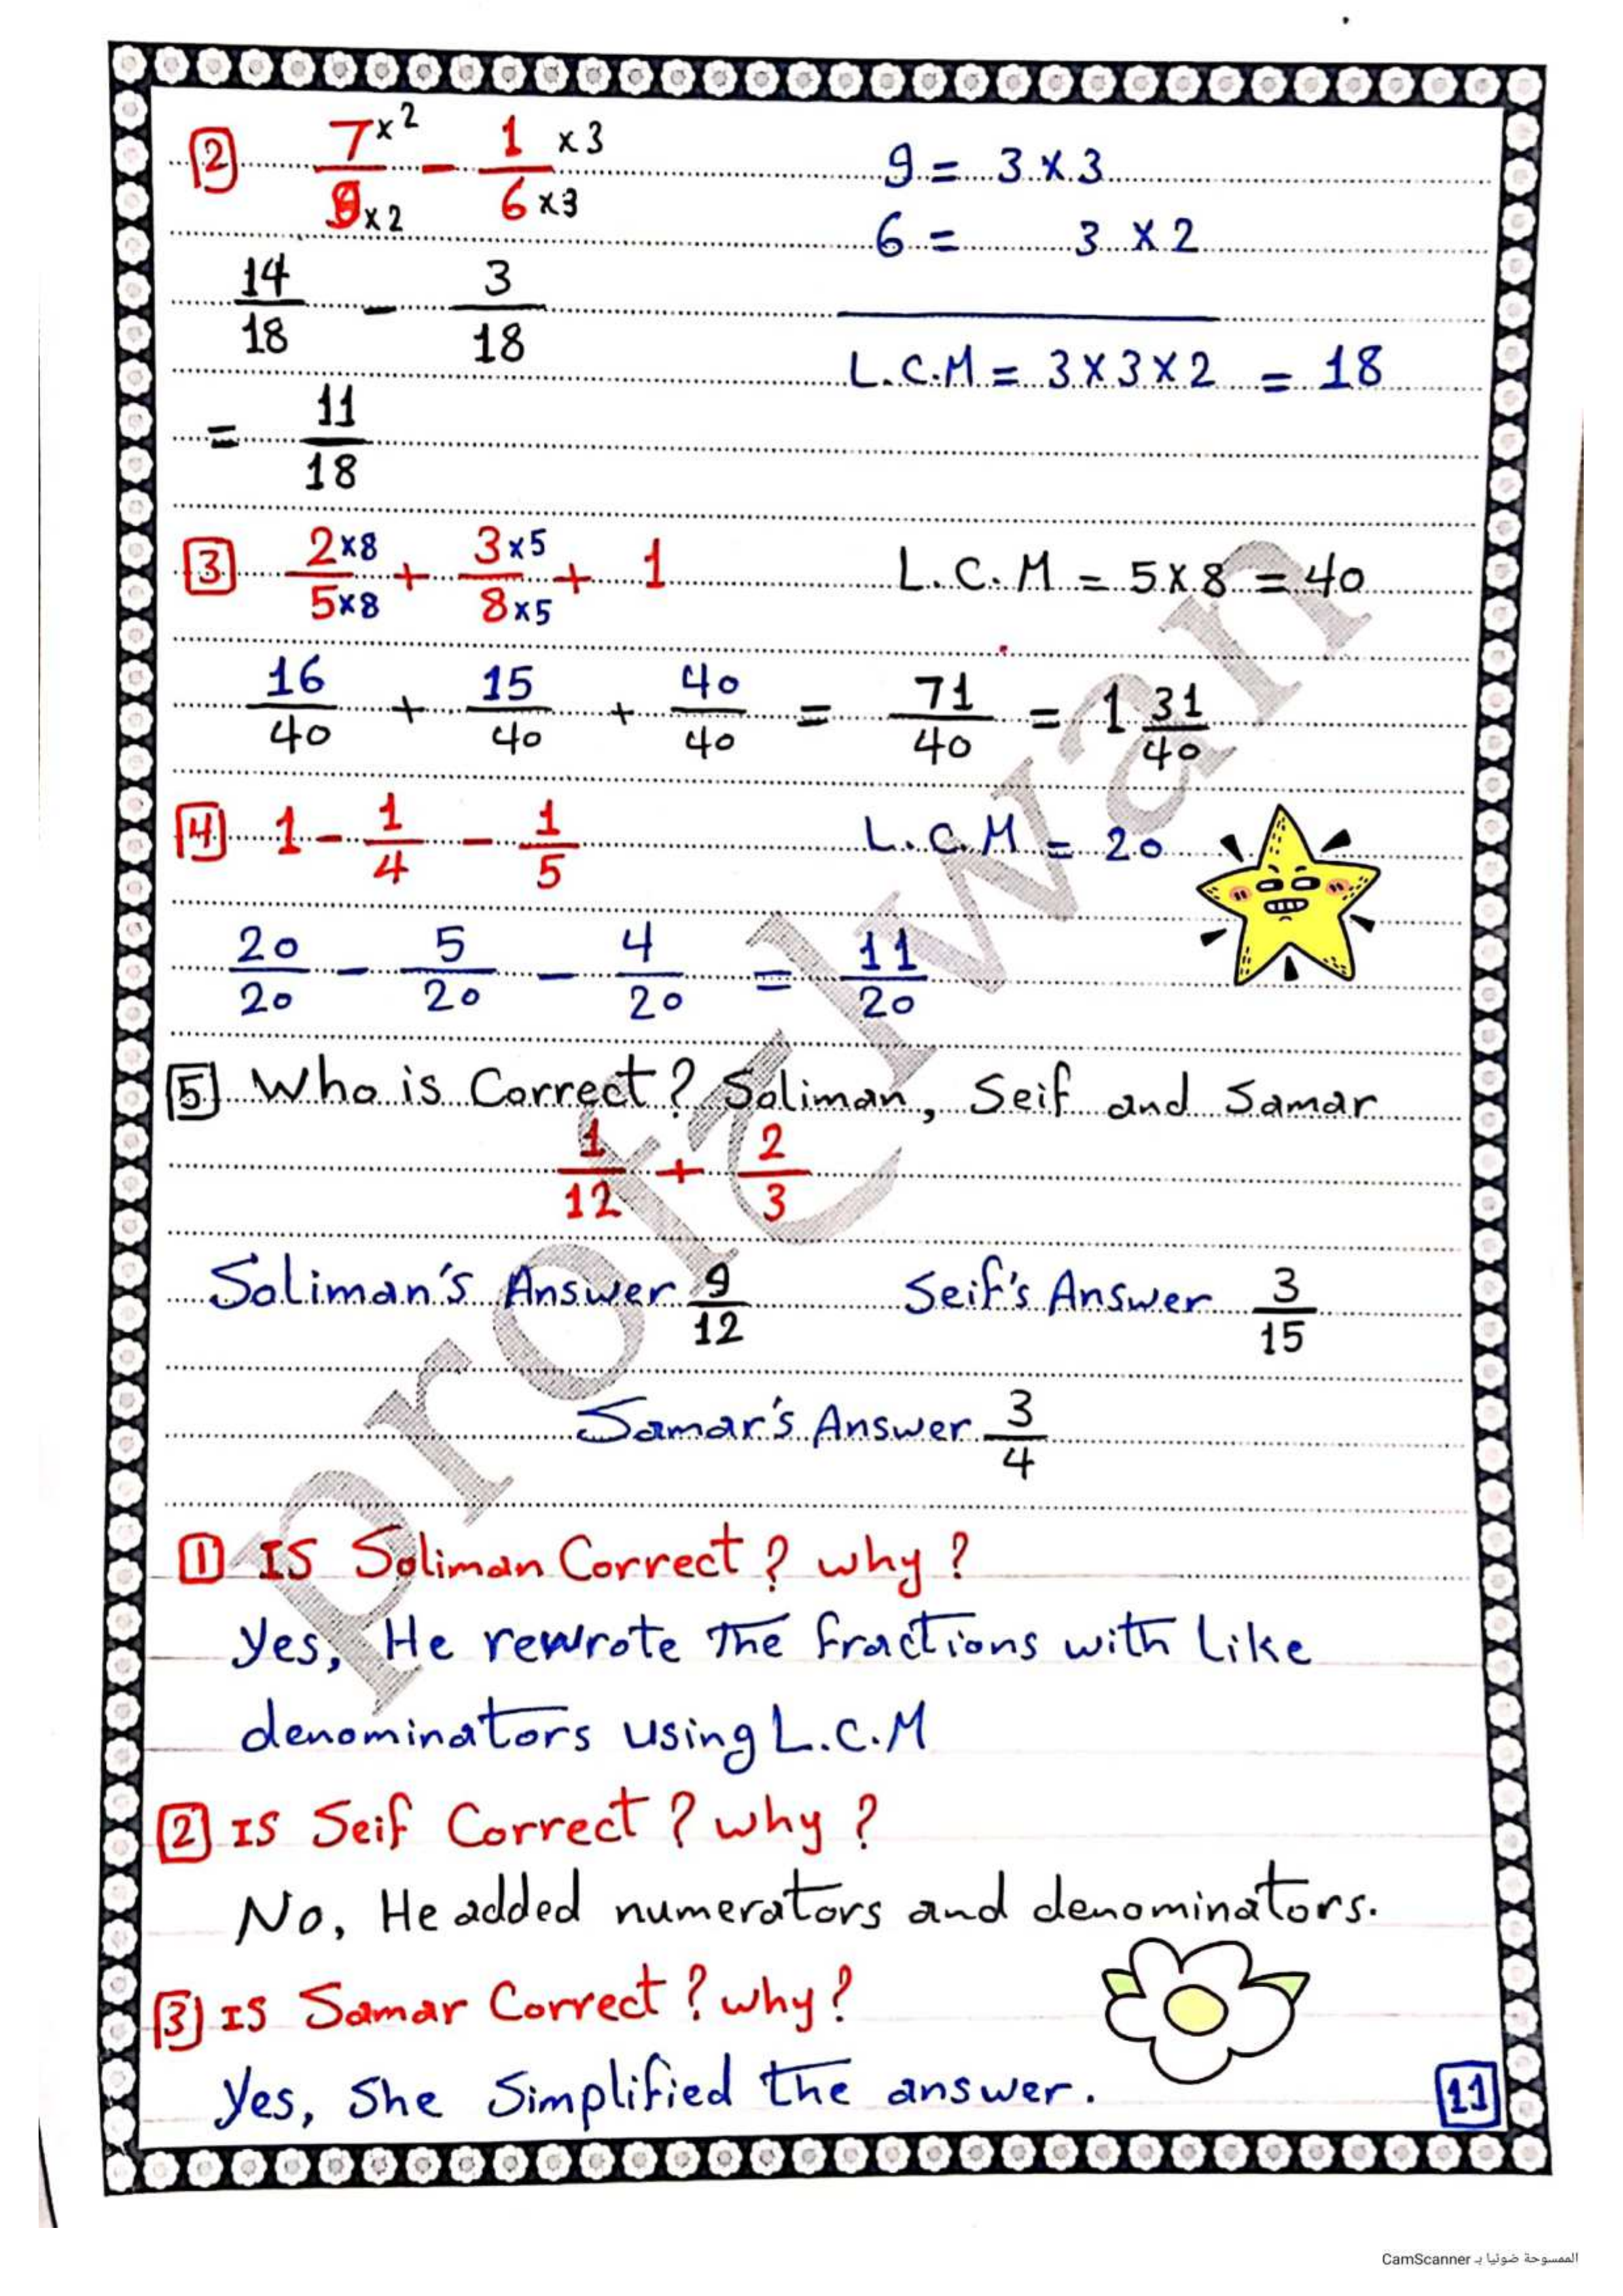 [2] 7×2/9×2 - 1×3/6×3 9 = 3×3
6 = 3×2
14/18 - 3/18
L.C.M = 3×3×2 = 18
= 11/18
[3] 2×8/5×8 + 3×5/8×5 + 1 L.C.M = 5×8 = 40
16/40 + 15/40 + 40/40 = 71/40 = 1 31/40
[4] 1 - 1/4 - 1/5 L.C.M = 20
20/20 - 5/20 - 4/20 = 11/20
[5] Who is Correct? Soliman, Seif and Samar
1/12 + 2/3
Soliman's Answer 9/12 Seif's Answer 3/15
Samar's Answer 3/4
[1] IS Soliman Correct? why?
Yes, He rewrote The fractions with Like
denominators using L.C.M
[2] IS Seif Correct? why?
No, He added numerators and denominators.
[3] IS Samar Correct? why?
Yes, She Simplified the answer.
11
prof Elwan
الممسوحة ضوئيا بـ CamScanner